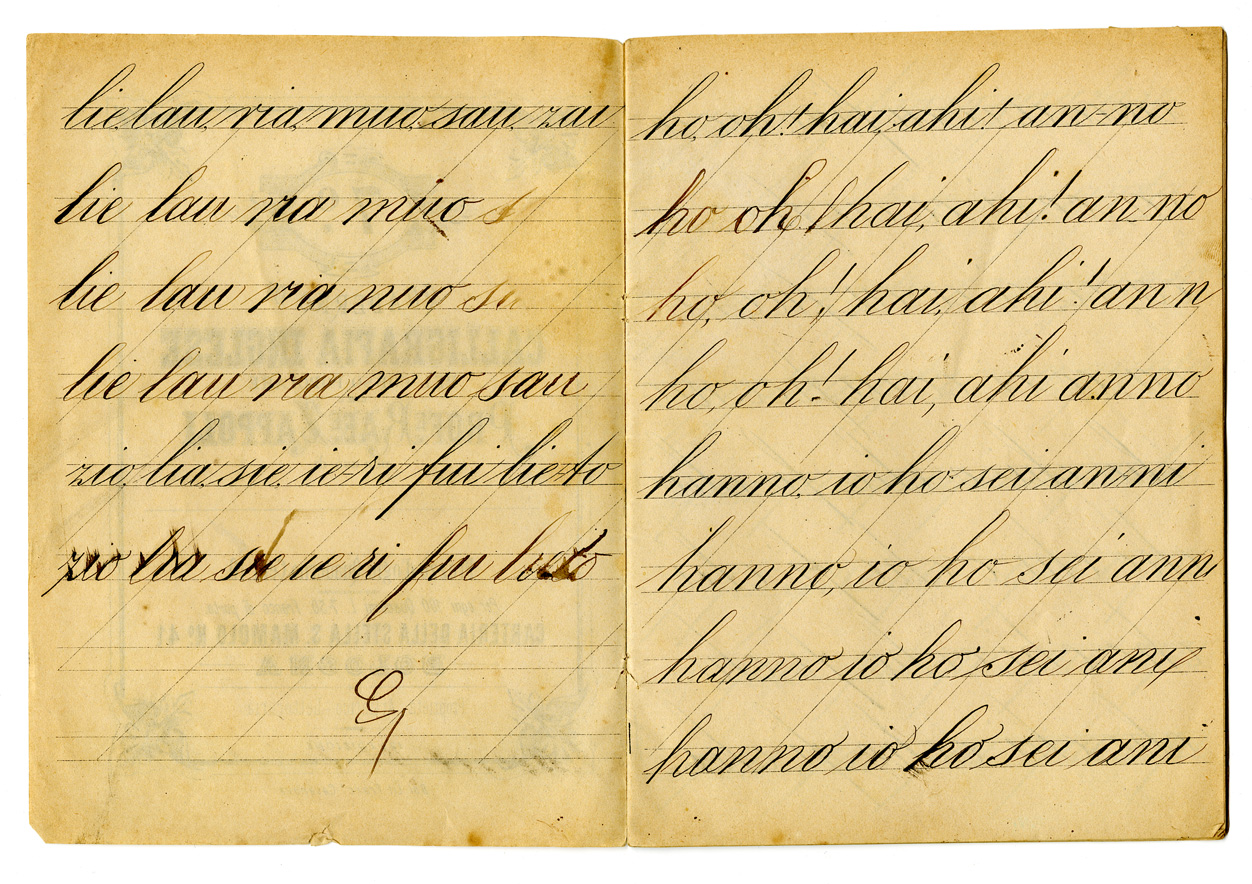 lie lau ria muo sau zai
lie lau ria muo s
lie lau ria nuo su
lie lau ria muo sau
zio, lia, sie, ie-ri fui lie-to
zio lia sie ie ri fui lieto
ho, oh! hai, ahi! an-no
ho oh! hai, ahi! an no
ho, oh! hai, ahi! an n
ho, oh! hai, ahi anno
hanno, io ho sei an-ni
hanno, io ho sei anni
hanno io ho sei ani
hanno io ho sei ani